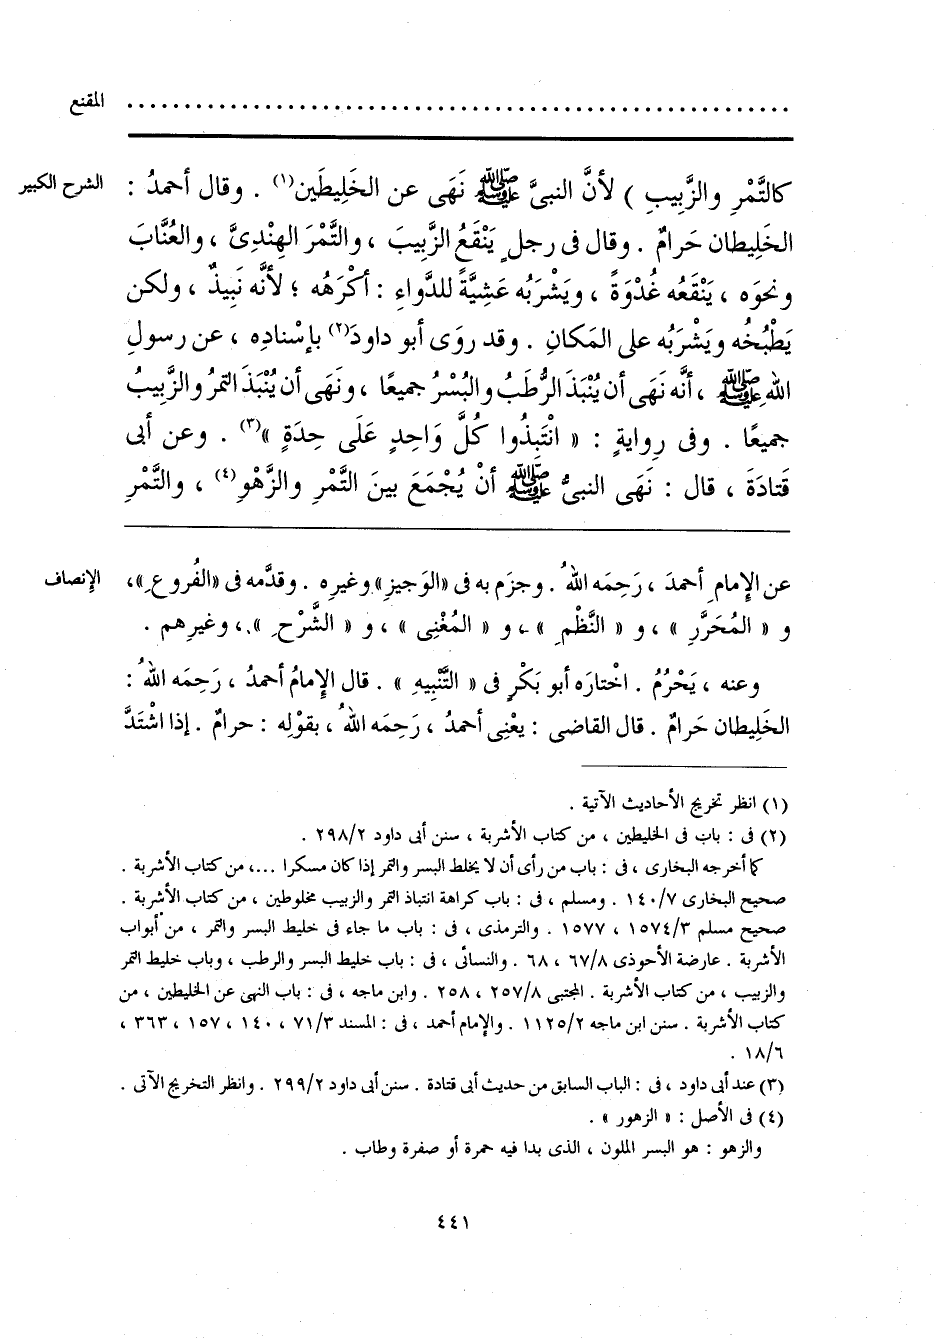 المقنع ..........................................................
الشرح الكبير كالتَّمْرِ والزَّبِيبِ ) لأنَّ النبىَّ ﷺ نَهَى عن الخَلِيطَين(١) . وقال أحمدُ :
الخَلِيطان حَرامٌ . وقال فى رجلٍ يَنْقَعُ الزَّبِيبَ ، والتَّمْرَ الهِنْدِىَّ ، والعُنَّابَ
ونحوَه ، يَنْقَعُه غُدْوَةً ، ويَشْرَبُه عَشِيَّةً للدَّواءِ : أكْرَهُه ؛ لأنَّه نَبِيذٌ ، ولكن
يَطْبُخُه ويَشْرَبُه على المَكانِ . وقد روَى أبو داودَ(٢) بإسْنادِه ، عن رسولِ
اللهِ ﷺ ، أنَّه نَهَى أن يُنْبَذَ الرُّطَبُ والبُسْرُ جميعًا ، ونَهَى أن يُنْبَذَ التمرُ والزَّبِيبُ
جميعًا . وفى رِوايةٍ : « انْتَبِذُوا كُلَّ وَاحِدٍ عَلَى حِدَةٍ »(٣) . وعن أبى
قَتادَةَ ، قال : نَهَى النبىُّ ﷺ أنْ يُجْمَعَ بينَ التَّمْرِ والزَّهْوِ(٤) ، والتَّمْرِ
الإنصاف عن الإمامِ أحمدَ ، رَحِمَه اللهُ . وجزَم به فى «الوَجيزِ» وغيرِه . وقدَّمه فى «الفُروعِ»،
و « المُحَرَّرِ » ، و « النَّظْمِ » ، و « المُغْنِى » ، و « الشَّرْحِ » ، وغيرِهم .
وعنه ، يَحْرُمُ . اخْتارَه أبو بَكْرٍ فى « التَّنْبِيهِ » . قال الإمامُ أحمدُ ، رَحِمَه اللهُ :
الخَلِيطان حَرامٌ . قال القاضى : يعْنِى أحمدُ ، رَحِمَه اللهُ ، بقوْلِه : حرامٌ . إذا اشْتَدَّ
(١) انظر تخريج الأحاديث الآتية .
(٢) فى : باب فى الخليطين ، من كتاب الأشربة ، سنن أبى داود ٢٩٨/٢ .
كما أخرجه البخارى ، فى : باب من رأى أن لا يخلط البسر والتمر إذا كان مسكرا ...، من كتاب الأشربة .
صحيح البخارى ١٤٠/٧ . ومسلم ، فى : باب كراهة انتباذ التمر والزبيب مخلوطين ، من كتاب الأشربة .
صحيح مسلم ١٥٧٤/٣ ، ١٥٧٧ . والترمذى ، فى : باب ما جاء فى خليط البسر والتمر ، من أبواب
الأشربة . عارضة الأحوذى ٦٧/٨ ، ٦٨ . والنسائى ، فى : باب خليط البسر والرطب ، وباب خليط التمر
والزبيب ، من كتاب الأشربة . المجتبى ٢٥٧/٨ ، ٢٥٨ . وابن ماجه ، فى : باب النهى عن الخليطين ، من
كتاب الأشربة . سنن ابن ماجه ١١٢٥/٢ . والإمام أحمد ، فى : المسند ٧١/٣ ، ١٤٠ ، ١٥٧ ، ٣٦٣ ،
١٨/٦ .
(٣) عند أبى داود ، فى : الباب السابق من حديث أبى قتادة . سنن أبى داود ٢٩٩/٢ . وانظر التخريج الآتى .
(٤) فى الأصل : « الزهور » .
والزهو : هو البسر الملون ، الذى بدا فيه حمرة أو صفرة وطاب .
٤٤١